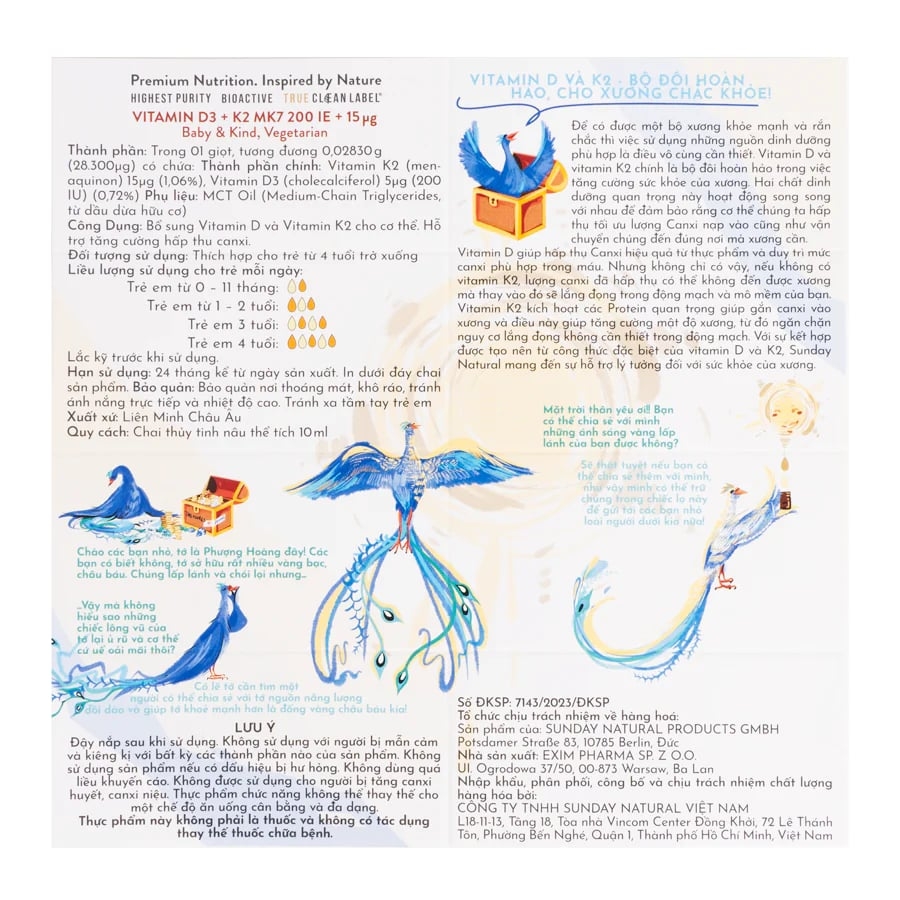 Premium Nutrition. Inspired by Nature
HIGHEST PURITY BIOACTIVE TRUE CLEAN LABEL®
VITAMIN D3 + K2 MK7 200 IE + 15 µg
Baby & Kind, Vegetarian
Thành phần: Trong 01 giọt, tương đương 0,02830g
(28.300µg) có chứa: Thành phần chính: Vitamin K2 (men-
aquinon) 15µg (1,06%), Vitamin D3 (cholecalciferol) 5µg (200
IU) (0,72%) Phụ liệu: MCT Oil (Medium-Chain Triglycerides,
từ dầu dừa hữu cơ)
Công Dụng: Bổ sung Vitamin D và Vitamin K2 cho cơ thể. Hỗ
trợ tăng cường hấp thu canxi.
Đối tượng sử dụng: Thích hợp cho trẻ từ 4 tuổi trở xuống
Liều lượng sử dụng cho trẻ mỗi ngày:
Trẻ em từ 0 – 11 tháng:
Trẻ em từ 1 – 2 tuổi:
Trẻ em 3 tuổi:
Trẻ em 4 tuổi:
Lắc kỹ trước khi sử dụng.
Hạn sử dụng: 24 tháng kể từ ngày sản xuất. In dưới đáy chai
sản phẩm. Bảo quản: Bảo quản nơi thoáng mát, khô ráo, tránh
ánh nắng trực tiếp và nhiệt độ cao. Tránh xa tầm tay trẻ em
Xuất xứ: Liên Minh Châu Âu
Quy cách: Chai thủy tinh nâu thể tích 10ml
Chào các bạn nhỏ, tớ là Phượng Hoàng đây! Các
bạn có biết không, tớ sở hữu rất nhiều vàng bạc,
châu báu. Chúng lấp lánh và chói lọi nhưng...
...Vậy mà không
hiểu sao những
chiếc lông vũ của
tớ lại ủ rũ và cơ thể
cứ uể oải mãi thôi?
Có lẽ tớ cần tìm một
người có thể chia sẻ với tớ nguồn năng lượng
dồi dào và giúp tớ khoẻ mạnh hơn là đống vàng châu báu kia!
LƯU Ý
Đậy nắp sau khi sử dụng. Không sử dụng với người bị mẫn cảm
và kiêng kị với bất kỳ các thành phần nào của sản phẩm. Không
sử dụng sản phẩm nếu có dấu hiệu bị hư hỏng. Không dùng quá
liều khuyến cáo. Không được sử dụng cho người bị tăng canxi
huyết, canxi niệu. Thực phẩm chức năng không thể thay thế cho
một chế độ ăn uống cân bằng và đa dạng.
Thực phẩm này không phải là thuốc và không có tác dụng
thay thế thuốc chữa bệnh.
VITAMIN D VÀ K2 - BỘ ĐÔI HOÀN
HẢO, CHO XƯƠNG CHẮC KHỎE!
Để có được một bộ xương khỏe mạnh và rắn
chắc thì việc sử dụng những nguồn dinh dưỡng
phù hợp là điều vô cùng cần thiết. Vitamin D và
vitamin K2 chính là bộ đôi hoàn hảo trong việc
tăng cường sức khỏe của xương. Hai chất dinh
dưỡng quan trọng này hoạt động song song
với nhau để đảm bảo rằng cơ thể chúng ta hấp
thụ tối ưu lượng Canxi nạp vào cũng như vận
chuyển chúng đến đúng nơi mà xương cần.
Vitamin D giúp hấp thụ Canxi hiệu quả từ thực phẩm và duy trì mức
canxi phù hợp trong máu. Nhưng không chỉ có vậy, nếu không có
vitamin K2, lượng canxi đã hấp thụ có thể không đến được xương
mà thay vào đó sẽ lắng đọng trong động mạch và mô mềm của bạn.
Vitamin K2 kích hoạt các Protein quan trọng giúp gắn canxi vào
xương và điều này giúp tăng cường mật độ xương, từ đó ngăn chặn
nguy cơ lắng đọng không cần thiết trong động mạch. Với sự kết hợp
được tạo nên từ công thức đặc biệt của vitamin D và K2, Sunday
Natural mang đến sự hỗ trợ lý tưởng đối với sức khỏe của xương.
Mặt trời thân yêu ơi!! Bạn
có thể chia sẻ với mình
những ánh sáng vàng lấp
lánh của bạn được không?
Sẽ thật tuyệt nếu bạn có
thể chia sẻ thêm với mình,
như vậy mình có thể trữ
chúng trong chiếc lọ này
để gửi tới các bạn nhỏ
loài người dưới kia nữa!
Số ĐKSP: 7143/2023/ĐKSP
Tổ chức chịu trách nhiệm về hàng hoá:
Sản phẩm của: SUNDAY NATURAL PRODUCTS GMBH
Potsdamer Straße 83, 10785 Berlin, Đức
Nhà sản xuất: EXIM PHARMA SP. Z O.O.
Ul. Ogrodowa 37/50, 00-873 Warsaw, Ba Lan
Nhập khẩu, phân phối, công bố và chịu trách nhiệm chất lượng
hàng hóa bởi:
CÔNG TY TNHH SUNDAY NATURAL VIỆT NAM
L18-11-13, Tầng 18, Tòa nhà Vincom Center Đồng Khởi, 72 Lê Thánh
Tôn, Phường Bến Nghé, Quận 1, Thành phố Hồ Chí Minh, Việt Nam